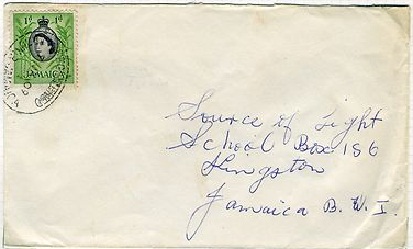 1d 1d
JAMAICA
Source of Light
School Box 156
Kingston
Jamaica B. W. I.